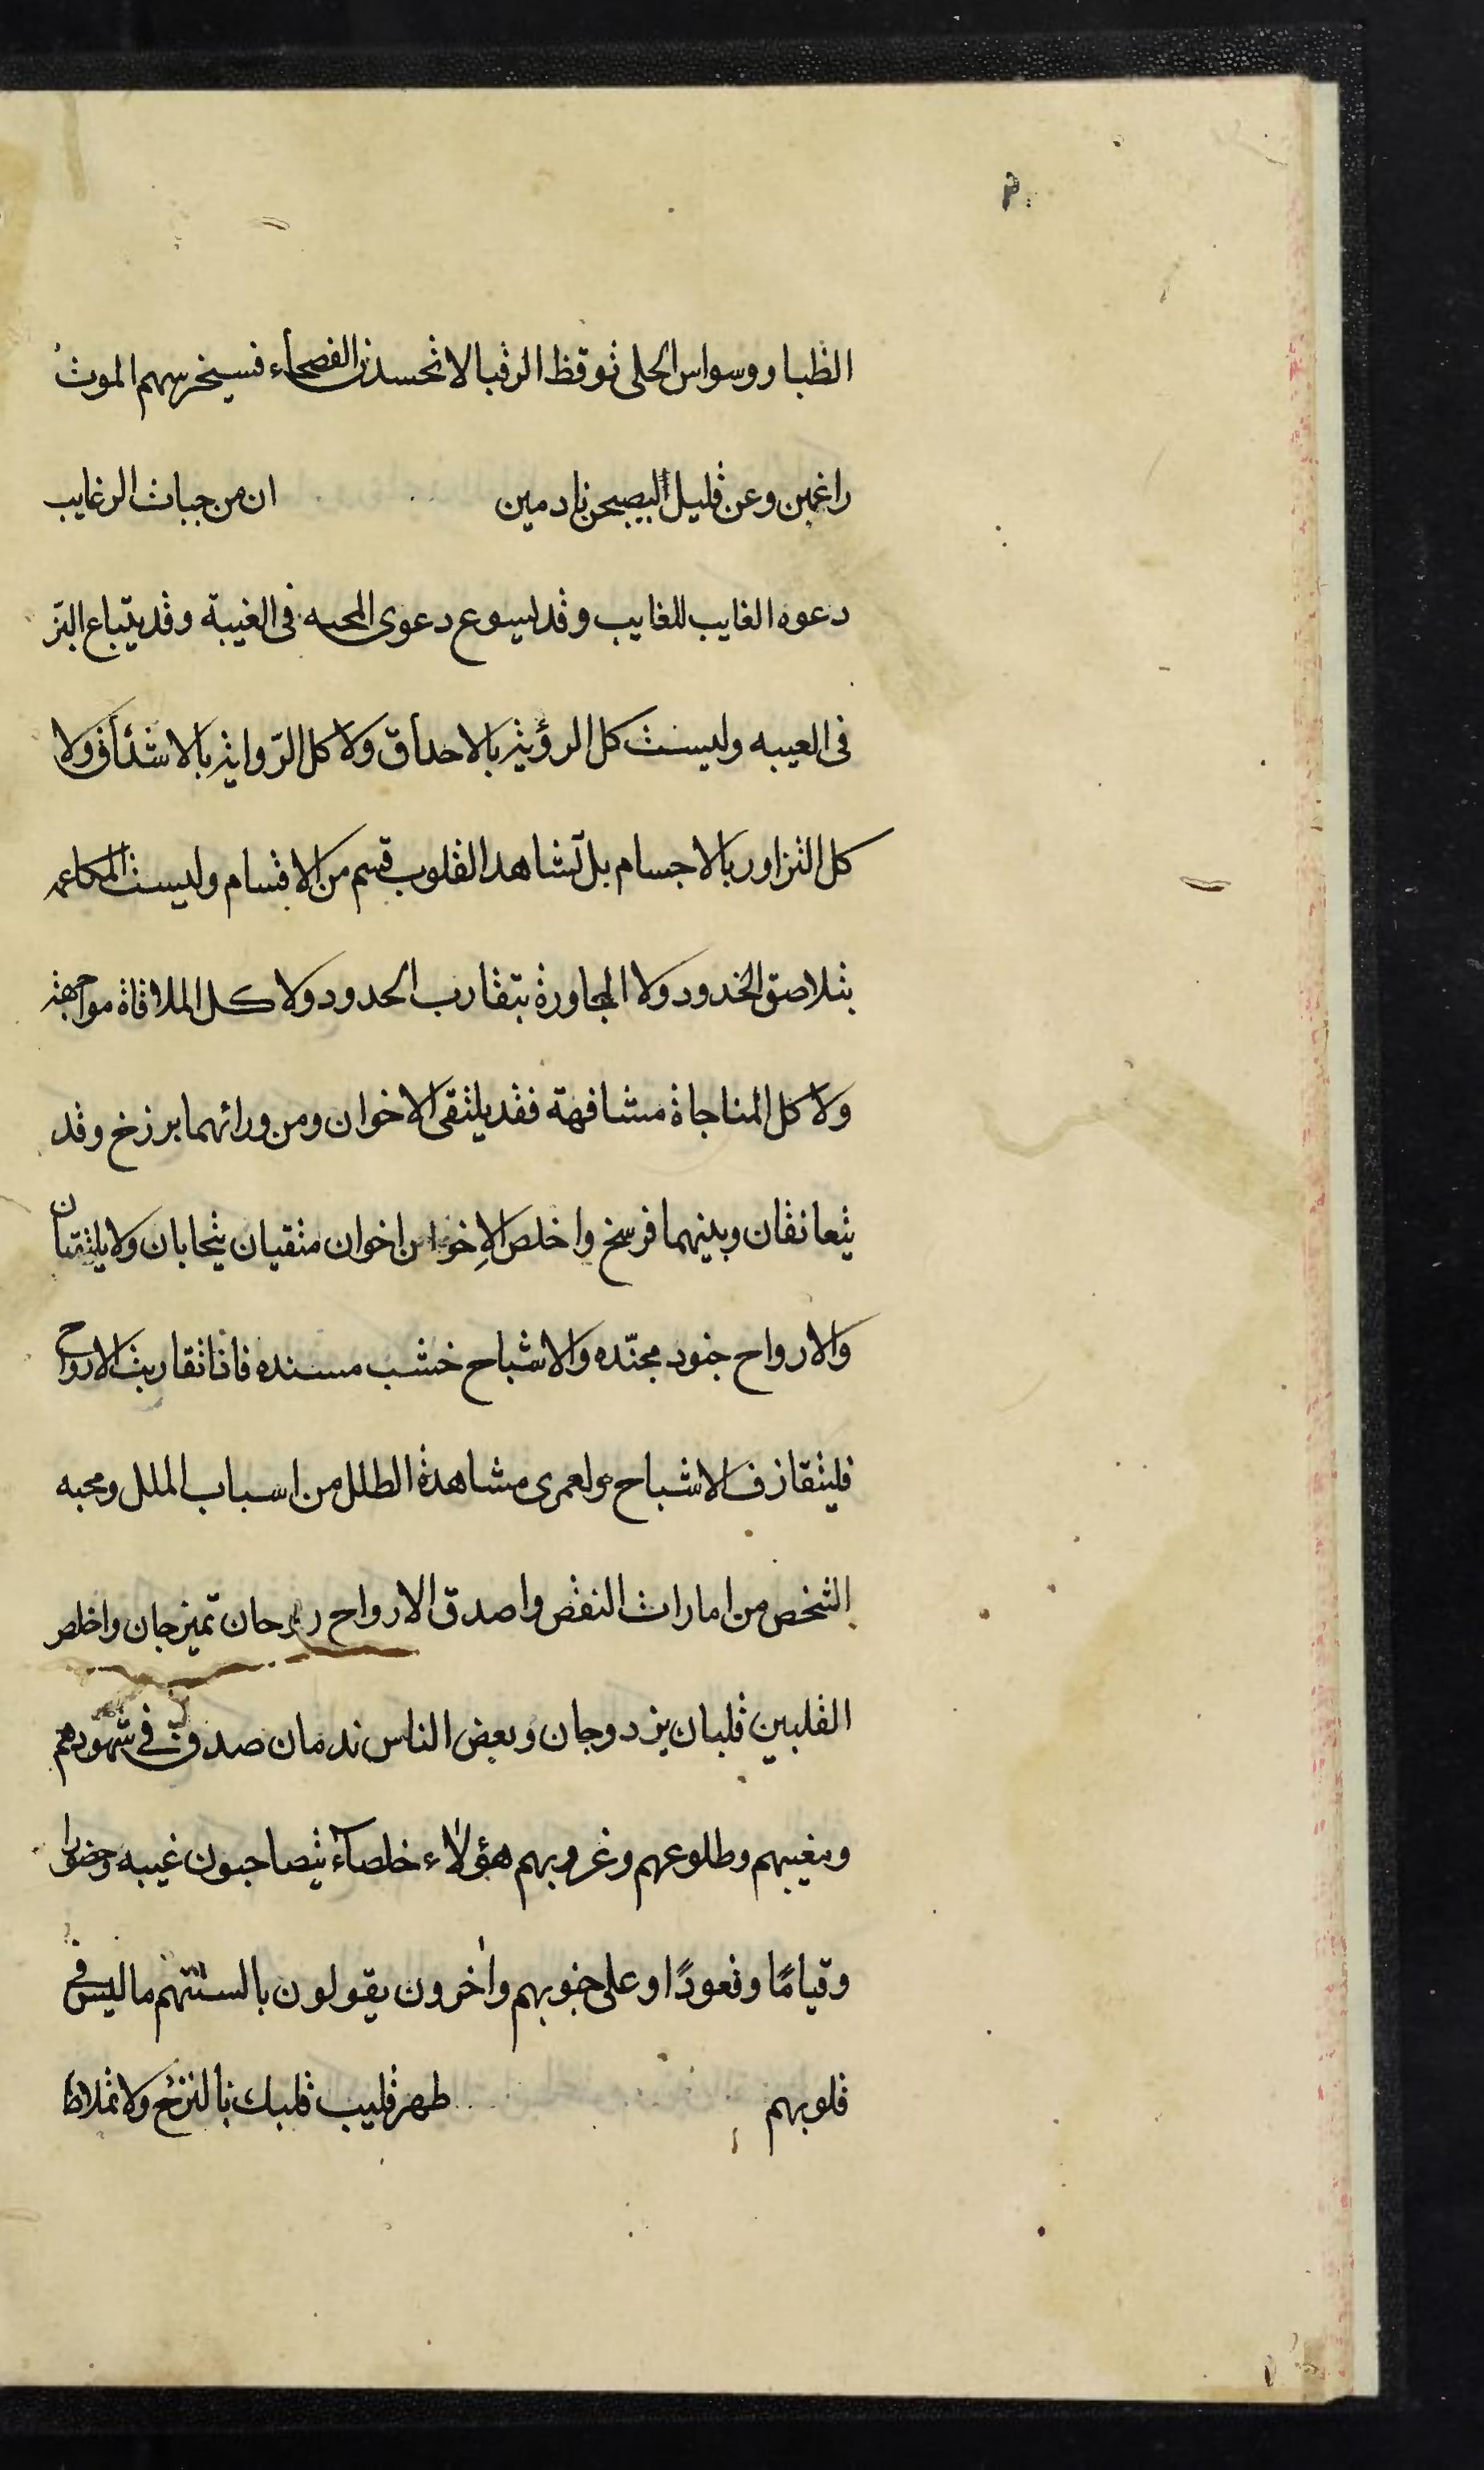 الظبا ووسواس الحلى توقظ الرقبا لا تحسدن الفصحاء فسيخرسهم الموت
راغمين وعن قليل ليصبحن نادمين ان من جبات الرغايب
دعوه الغايب للغايب وقد يسوع دعوى المحبه فى الغيبة وقد يتباع البز
فى العيبه وليست كل الرؤية بالاحداق ولا كل الرّواية بالاشداق ولا
كل التزاور بالاجسام بل تشاهد القلوب قسم من الاقسام وليست المكاعمه
بتلاصق الخدود ولا المجاورة بتقارب الحدود ولا كل الملاقاة مواجهة
ولا كل المناجاة مشافهة فقد يلتقى الاخوان ومن ورائهما برزخ وقد
يتعانقان وبينهما فرسخ واخلص الاِخوان اخوان متقيان يتحابان ولا يلتقيان
والارواح جنود مجنّده والاشباح خشب مسنده فاذا تقاربت الارواح
فليتقاذف الاشباح ولعمرى مشاهدة الطلل من اسباب الملل ومحبه
الشخص من امارات النقص واصدق الارواح روحان تميزجان واخلص
القلبين قلبان يزدوجان وبعض الناس ندمان صدق فى شهودهم
ومغيبهم وطلوعهم وغروبهم هؤلاء خلصآء يتصاحبون غيبه وحضورا
وقيامًا وقعودًا وعلى جنوبهم واخرون يقولون بالسنتهم ما ليس فى
قلوبهم طهر قليب قلبك بالنزح ولا تملاط